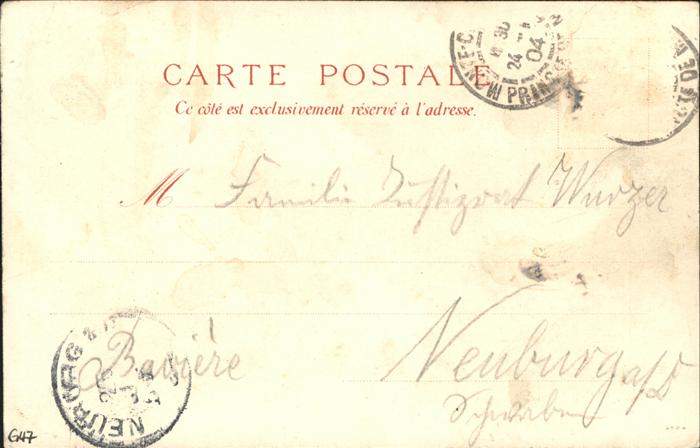 CARTE POSTALE
Ce côté est exclusivement réservé à l'adresse.
M Familie Justizrat Wurzer
Bavière
Neuburg a/D
Schwaben
NEUBURG
24
04
G47